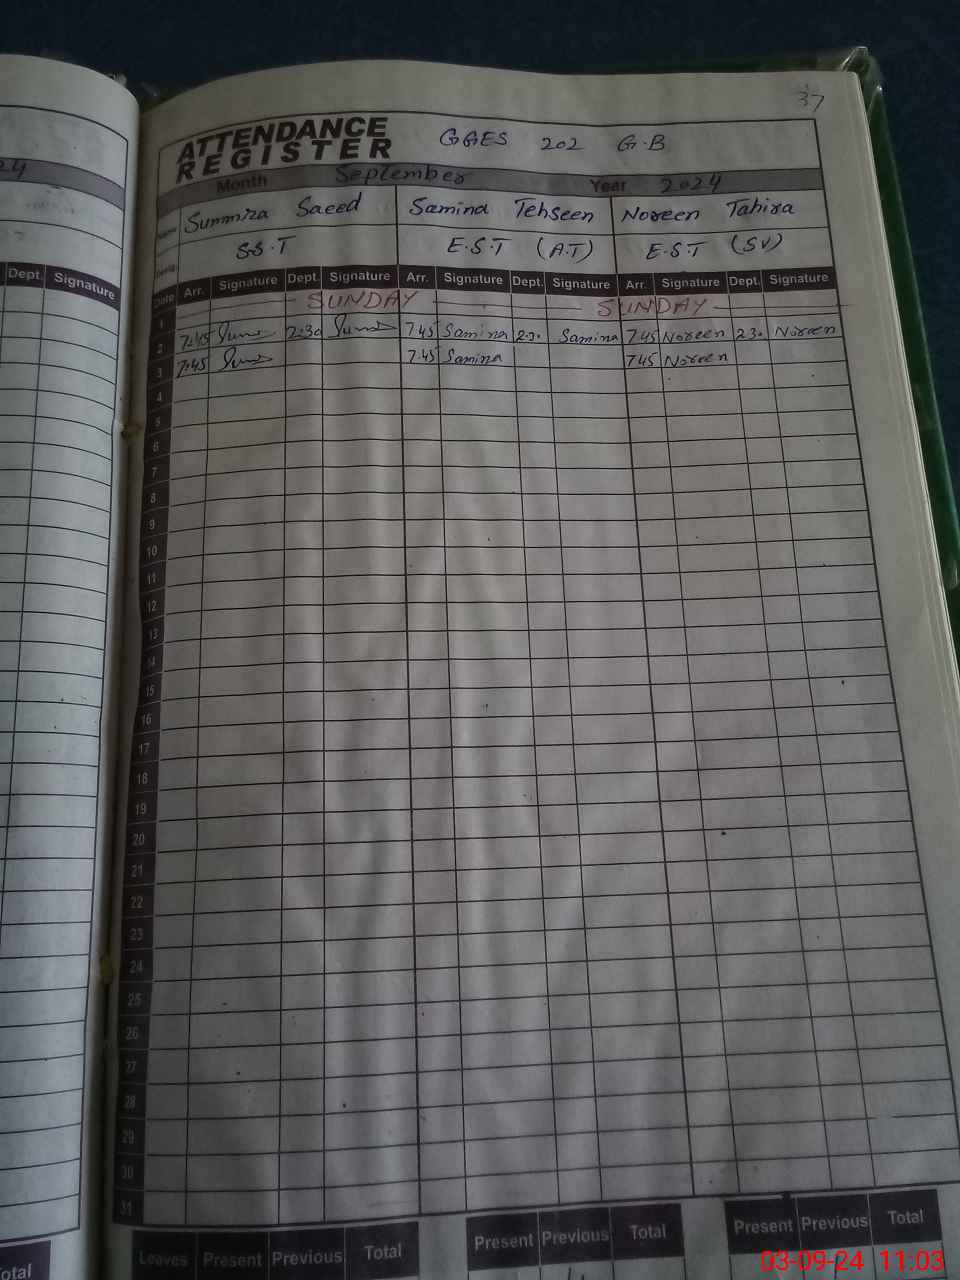 37
ATTENDANCE
REGISTER
GGES 202 G.B
24
Month September Year 2024
Name Summira Saeed Samina Tehseen Noreen Tahira
Desig S.S.T E.S.T (A.T) E.S.T (SV)
Dept. Signature
Date Arr. Signature Dept. Signature Arr. Signature Dept. Signature Arr. Signature Dept. Signature
1 SUNDAY SUNDAY
2 7:45 2:30 7.45 Samina Samina 7.45 Noreen 2.3. Noreen
3 7:45 7.45 Samina 7.45 Noreen
4
5
6
7
8
9
10
11
12
13
14
15
16
17
18
19
20
21
22
23
24
25
26
27
28
29
30
31
Total
Leaves Present Previous Total Present Previous Total Present Previous Total
03-09-24 11:03